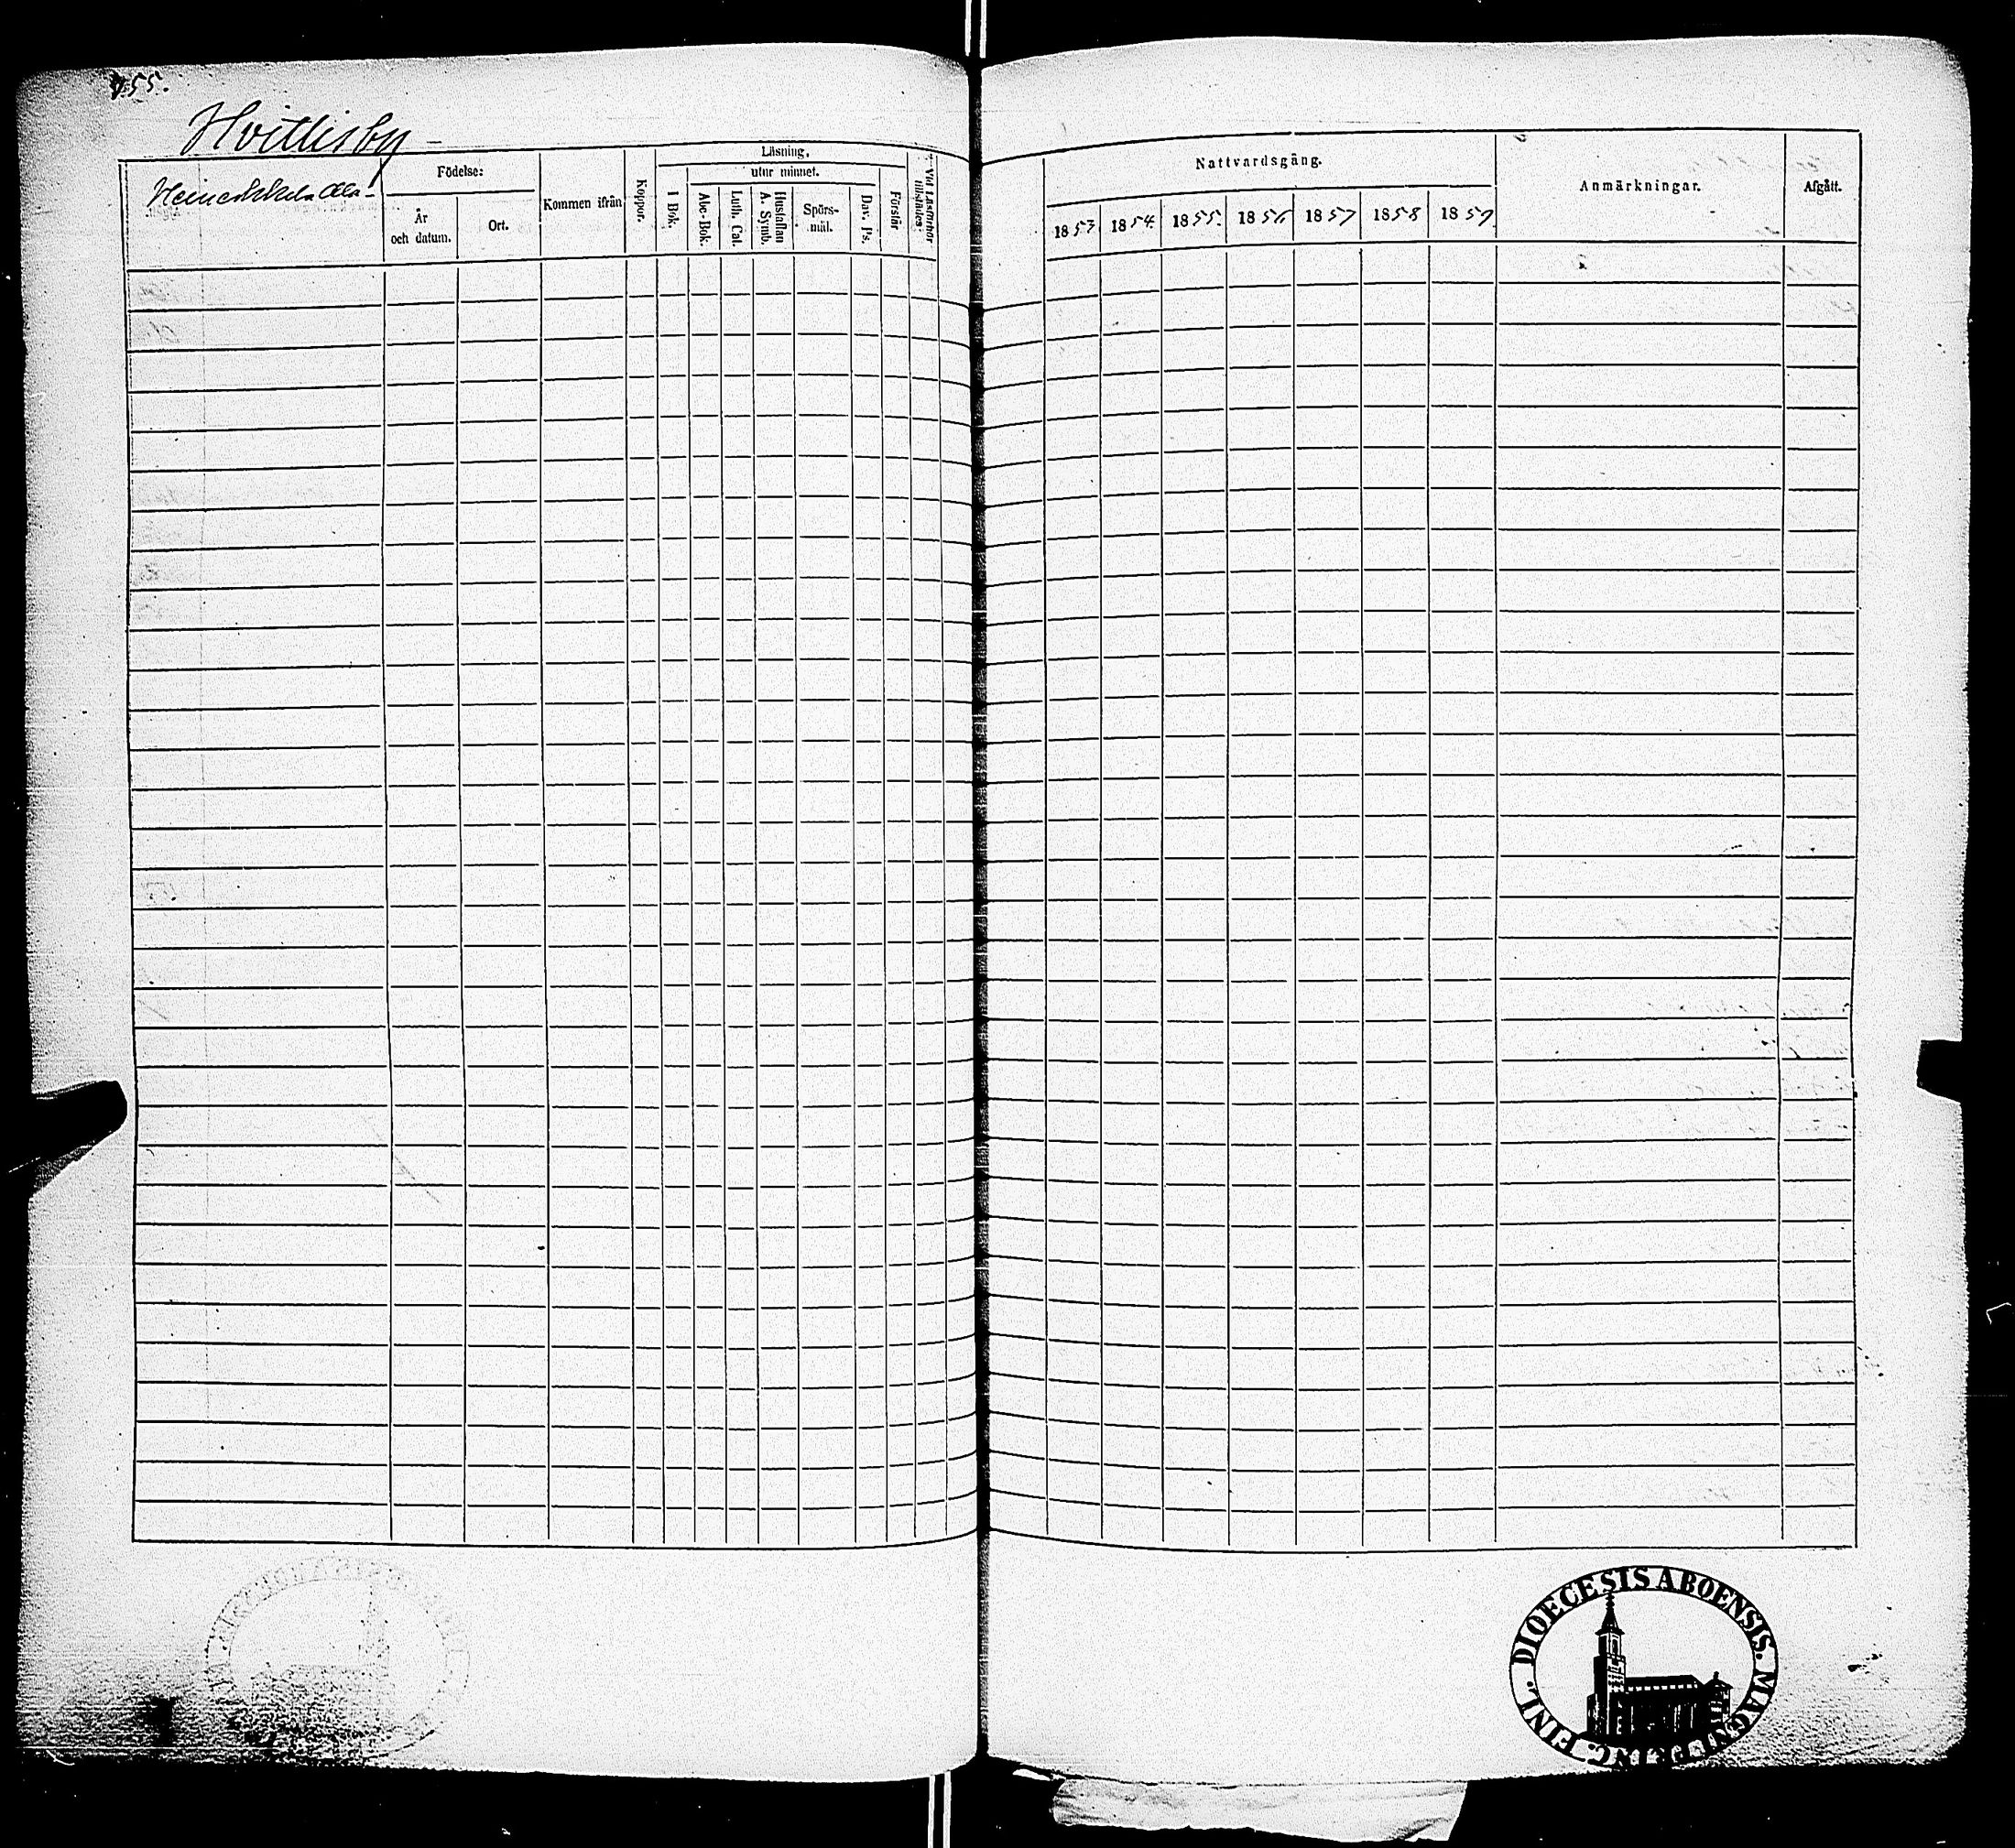 455.
Hvittisby
Födelse:
År
och datum.
Ort.
Kommen ifrån
Koppor.
Läsning.
utur minnet.
I Bok.
Abc-Bok.
Luth. Cat.
Hustaflan
A. Symb.
Spörs-
mål.
Dav. Ps.
Förstår
Vid Läsförhör
tillstädes:
Nattvardsgång.
1853
1854.
1855.
1856
1857
1858
1859
Anmärkningar.
Afgått.
DIOECESIS ABOENSIS. MAGNI PRINC. FINL.